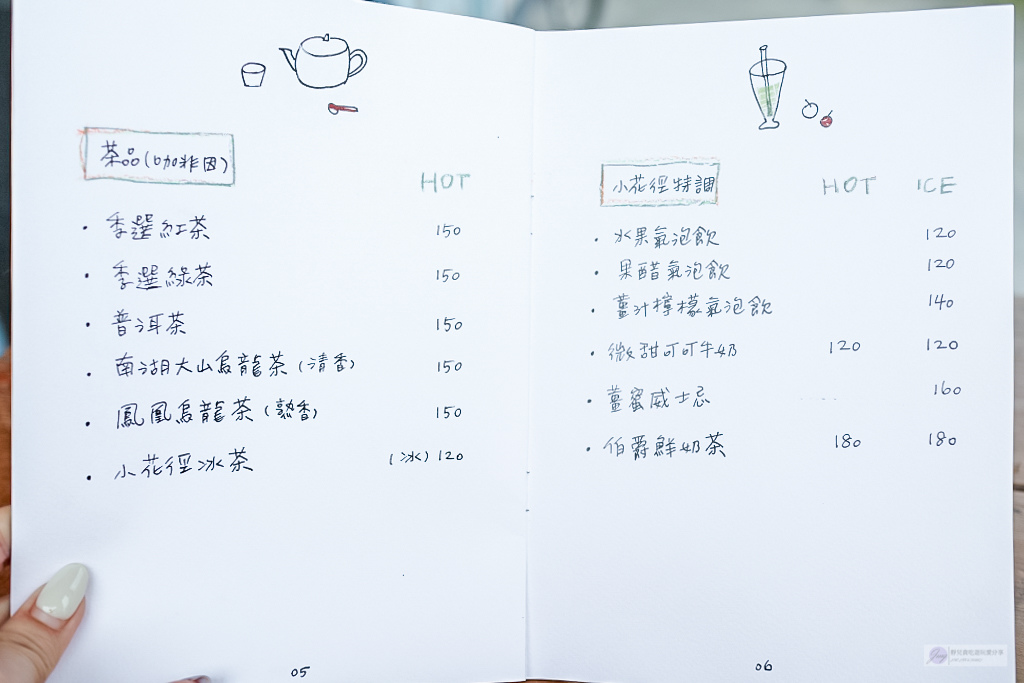 茶品(咖非因)
HOT
· 季選紅茶 150
· 季選綠茶 150
· 普洱茶 150
· 南湖大山烏龍茶(清香) 150
· 鳳凰烏龍茶(熟香) 150
· 小花徑冰茶 (冰) 120
05
小花徑特調 HOT ICE
· 水果氣泡飲 120
· 果醋氣泡飲 120
· 薑汁檸檬氣泡飲 140
· 微甜叮叮牛奶 120 120
· 薑蜜威士忌 160
· 伯爵鮮奶茶 180 180
06